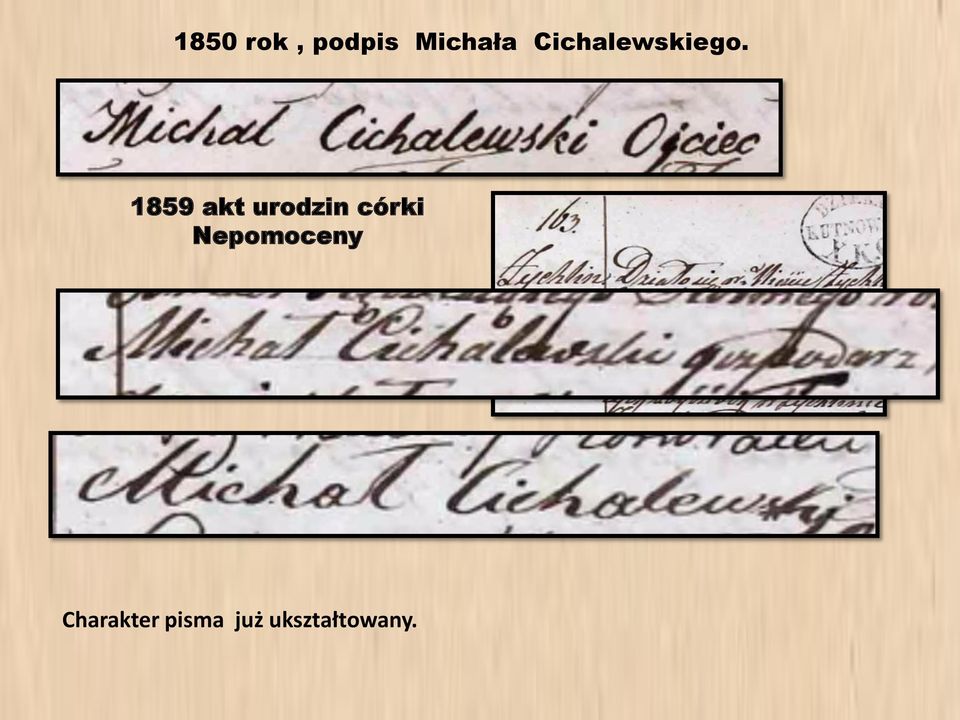 1850 rok , podpis Michała Cichalewskiego.
Michał Cichalewski Ojciec
1859 akt urodzin córki
Nepomoceny
163.
KUTNOW
Żychlin Działo się w Mieście Żychl
Michał Cichalewski gospodarz,
w Żychlinie
Michał Cichalewski
Charakter pisma już ukształtowany.